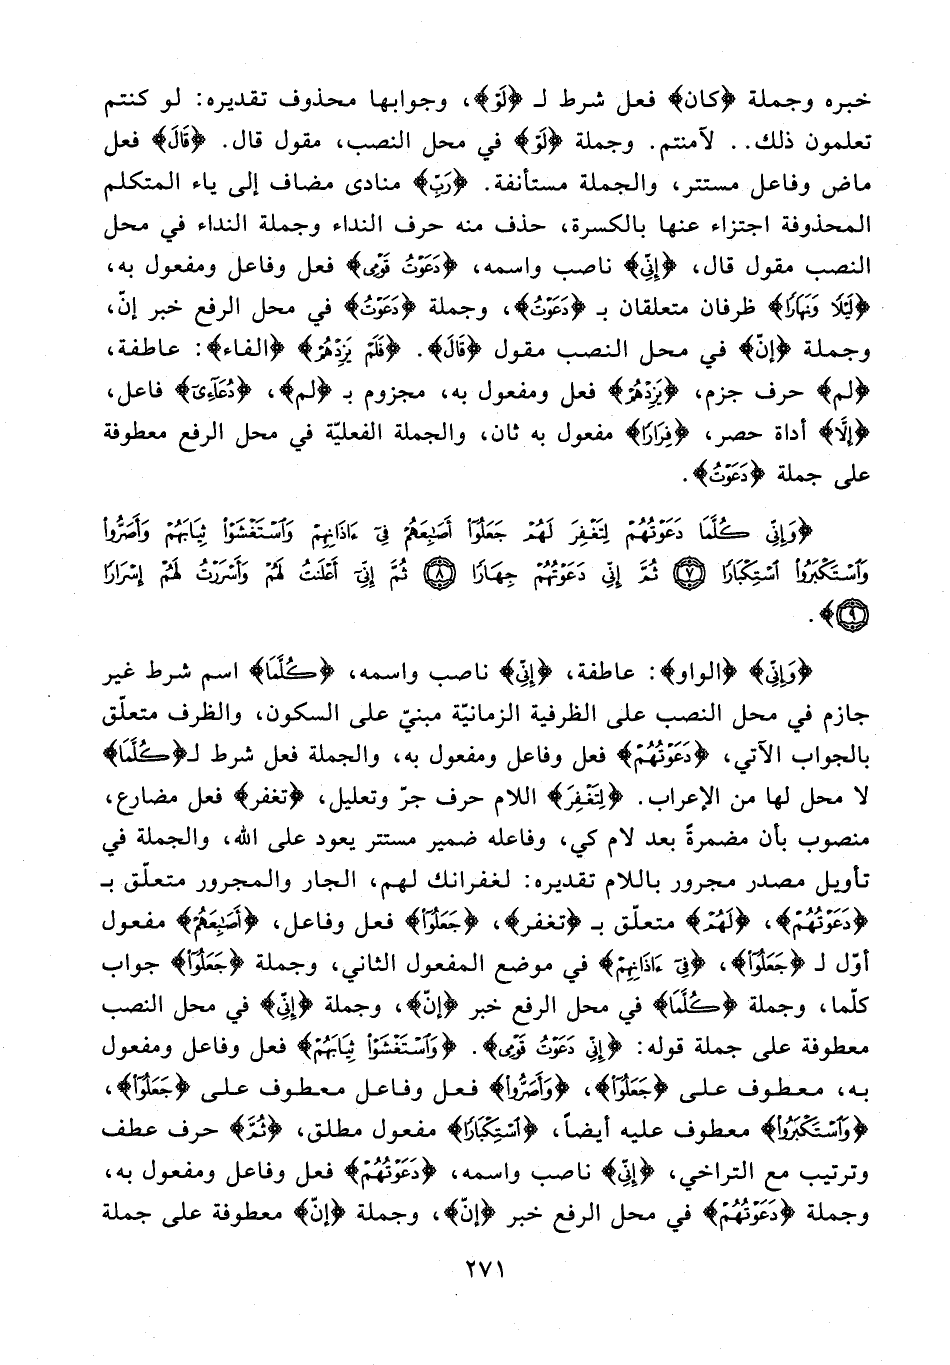 خبره وجملة ﴿كان﴾ فعل شرط لـ ﴿لَوْ﴾، وجوابها محذوف تقديره: لو كنتم
تعلمون ذلك.. لآمنتم. وجملة ﴿لَوْ﴾ في محل النصب، مقول قال. ﴿قَالَ﴾ فعل
ماض وفاعل مستتر، والجملة مستأنفة. ﴿رَبِّ﴾ منادى مضاف إلى ياء المتكلم
المحذوفة اجتزاء عنها بالكسرة، حذف منه حرف النداء وجملة النداء في محل
النصب مقول قال، ﴿إِنِّي﴾ ناصب واسمه، ﴿دَعَوْتُ قَوْمِي﴾ فعل وفاعل ومفعول به،
﴿لَيْلًا وَنَهَارًا﴾ ظرفان متعلقان بـ ﴿دَعَوْتُ﴾، وجملة ﴿دَعَوْتُ﴾ في محل الرفع خبر إنّ،
وجملة ﴿إنّ﴾ في محل النصب مقول ﴿قَالَ﴾. ﴿فَلَمْ يَزِدْهُمْ﴾ ﴿الفاء﴾: عاطفة،
﴿لم﴾ حرف جزم، ﴿يَزِدْهُمْ﴾ فعل ومفعول به، مجزوم بـ ﴿لم﴾، ﴿دُعَآءِىٓ﴾ فاعل،
﴿إِلَّا﴾ أداة حصر، ﴿فِرَارًا﴾ مفعول به ثان، والجملة الفعليّة في محل الرفع معطوفة
على جملة ﴿دَعَوْتُ﴾.
﴿وَإِنِّي كُلَّمَا دَعَوْتُهُمْ لِتَغْفِرَ لَهُمْ جَعَلُوٓا۟ أَصَٰبِعَهُمْ فِىٓ ءَاذَانِهِمْ وَٱسْتَغْشَوْا۟ ثِيَابَهُمْ وَأَصَرُّوا۟
وَٱسْتَكْبَرُوا۟ ٱسْتِكْبَارًا ٧ ثُمَّ إِنِّي دَعَوْتُهُمْ جِهَارًا ٨ ثُمَّ إِنِّىٓ أَعْلَنتُ لَهُمْ وَأَسْرَرْتُ لَهُمْ إِسْرَارًا
٩﴾.
﴿وَإِنِّي﴾ ﴿الواو﴾: عاطفة، ﴿إِنِّي﴾ ناصب واسمه، ﴿كُلَّمَا﴾ اسم شرط غير
جازم في محل النصب على الظرفية الزمانيّة مبنيّ على السكون، والظرف متعلّق
بالجواب الآتي، ﴿دَعَوْتُهُمْ﴾ فعل وفاعل ومفعول به، والجملة فعل شرط لـ﴿كُلَّمَا﴾
لا محل لها من الإعراب. ﴿لِتَغْفِرَ﴾ اللام حرف جرّ وتعليل، ﴿تغفر﴾ فعل مضارع،
منصوب بأن مضمرةً بعد لام كي، وفاعله ضمير مستتر يعود على الله، والجملة في
تأويل مصدر مجرور باللام تقديره: لغفرانك لهم، الجار والمجرور متعلّق بـ
﴿دَعَوْتُهُمْ﴾، ﴿لَهُمْ﴾ متعلّق بـ ﴿تغفر﴾، ﴿جَعَلُوٓا۟﴾ فعل وفاعل، ﴿أَصَٰبِعَهُمْ﴾ مفعول
أوّل لـ ﴿جَعَلُوٓا۟﴾، ﴿فِىٓ ءَاذَانِهِمْ﴾ في موضع المفعول الثاني، وجملة ﴿جَعَلُوٓا۟﴾ جواب
كلّما، وجملة ﴿كُلَّمَا﴾ في محل الرفع خبر ﴿إنّ﴾، وجملة ﴿إِنِّي﴾ في محل النصب
معطوفة على جملة قوله: ﴿إِنِّي دَعَوْتُ قَوْمِي﴾. ﴿وَٱسْتَغْشَوْا۟ ثِيَابَهُمْ﴾ فعل وفاعل ومفعول
به، معطوف على ﴿جَعَلُوٓا۟﴾، ﴿وَأَصَرُّوا۟﴾ فعل وفاعل معطوف على ﴿جَعَلُوٓا۟﴾،
﴿وَٱسْتَكْبَرُوا۟﴾ معطوف عليه أيضاً، ﴿ٱسْتِكْبَارًا﴾ مفعول مطلق، ﴿ثُمَّ﴾ حرف عطف
وترتيب مع التراخي، ﴿إِنِّي﴾ ناصب واسمه، ﴿دَعَوْتُهُمْ﴾ فعل وفاعل ومفعول به،
وجملة ﴿دَعَوْتُهُمْ﴾ في محل الرفع خبر ﴿إنّ﴾، وجملة ﴿إنّ﴾ معطوفة على جملة
٢٧١